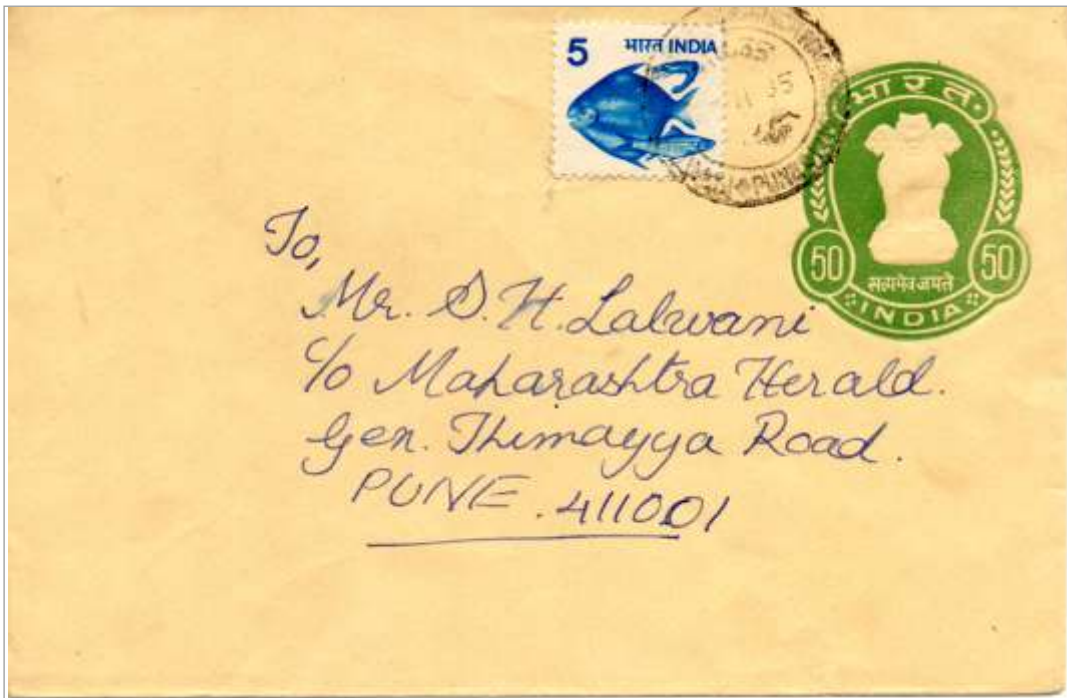 5 भारत INDIA
भारत
50 50
सत्यमेव जयते
INDIA
To,
Mr. D. H. Lalwani
c/o Maharashtra Herald.
Gen. Thimayya Road.
PUNE. 411001